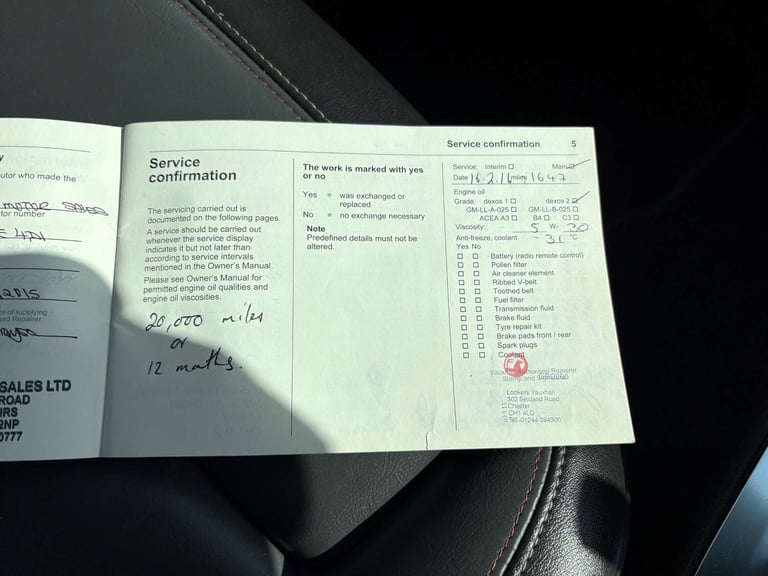 utor who made the
MOTOR SALES
tor number
2015
re of supplying
sed Repairer
SALES LTD
ROAD
IRS
2NP
0777
Service
confirmation
The servicing carried out is
documented on the following pages.
A service should be carried out
whenever the service display
indicates it but not later than
according to service intervals
mentioned in the Owner's Manual.
Please see Owner's Manual for
permitted engine oil qualities and
engine oil viscosities.
20,000 miles
or
12 months.
The work is marked with yes
or no
Yes = was exchanged or
replaced
No = no exchange necessary
Note
Predefined details must not be
altered.
Service confirmation 5
Service: Interim Main
Date 16.2.16 miles 1647
Engine oil
Grade: dexos 1 dexos 2
GM-LL-A-025 GM-LL-B-025
ACEA A3 B4 C3
Viscosity: 5 W- 30
Anti-freeze, coolant - 31 °C
Yes No
Battery (radio remote control)
Pollen filter
Air cleaner element
Ribbed V-belt
Toothed belt
Fuel filter
Transmission fluid
Brake fluid
Tyre repair kit
Brake pads front / rear
Spark plugs
Coolant
Vauxhall Authorised Repairer
Stamp and
Lookers Vauxhall
302 Sealand Road
Chester
CH1 4LQ
Tel - 01244 394300